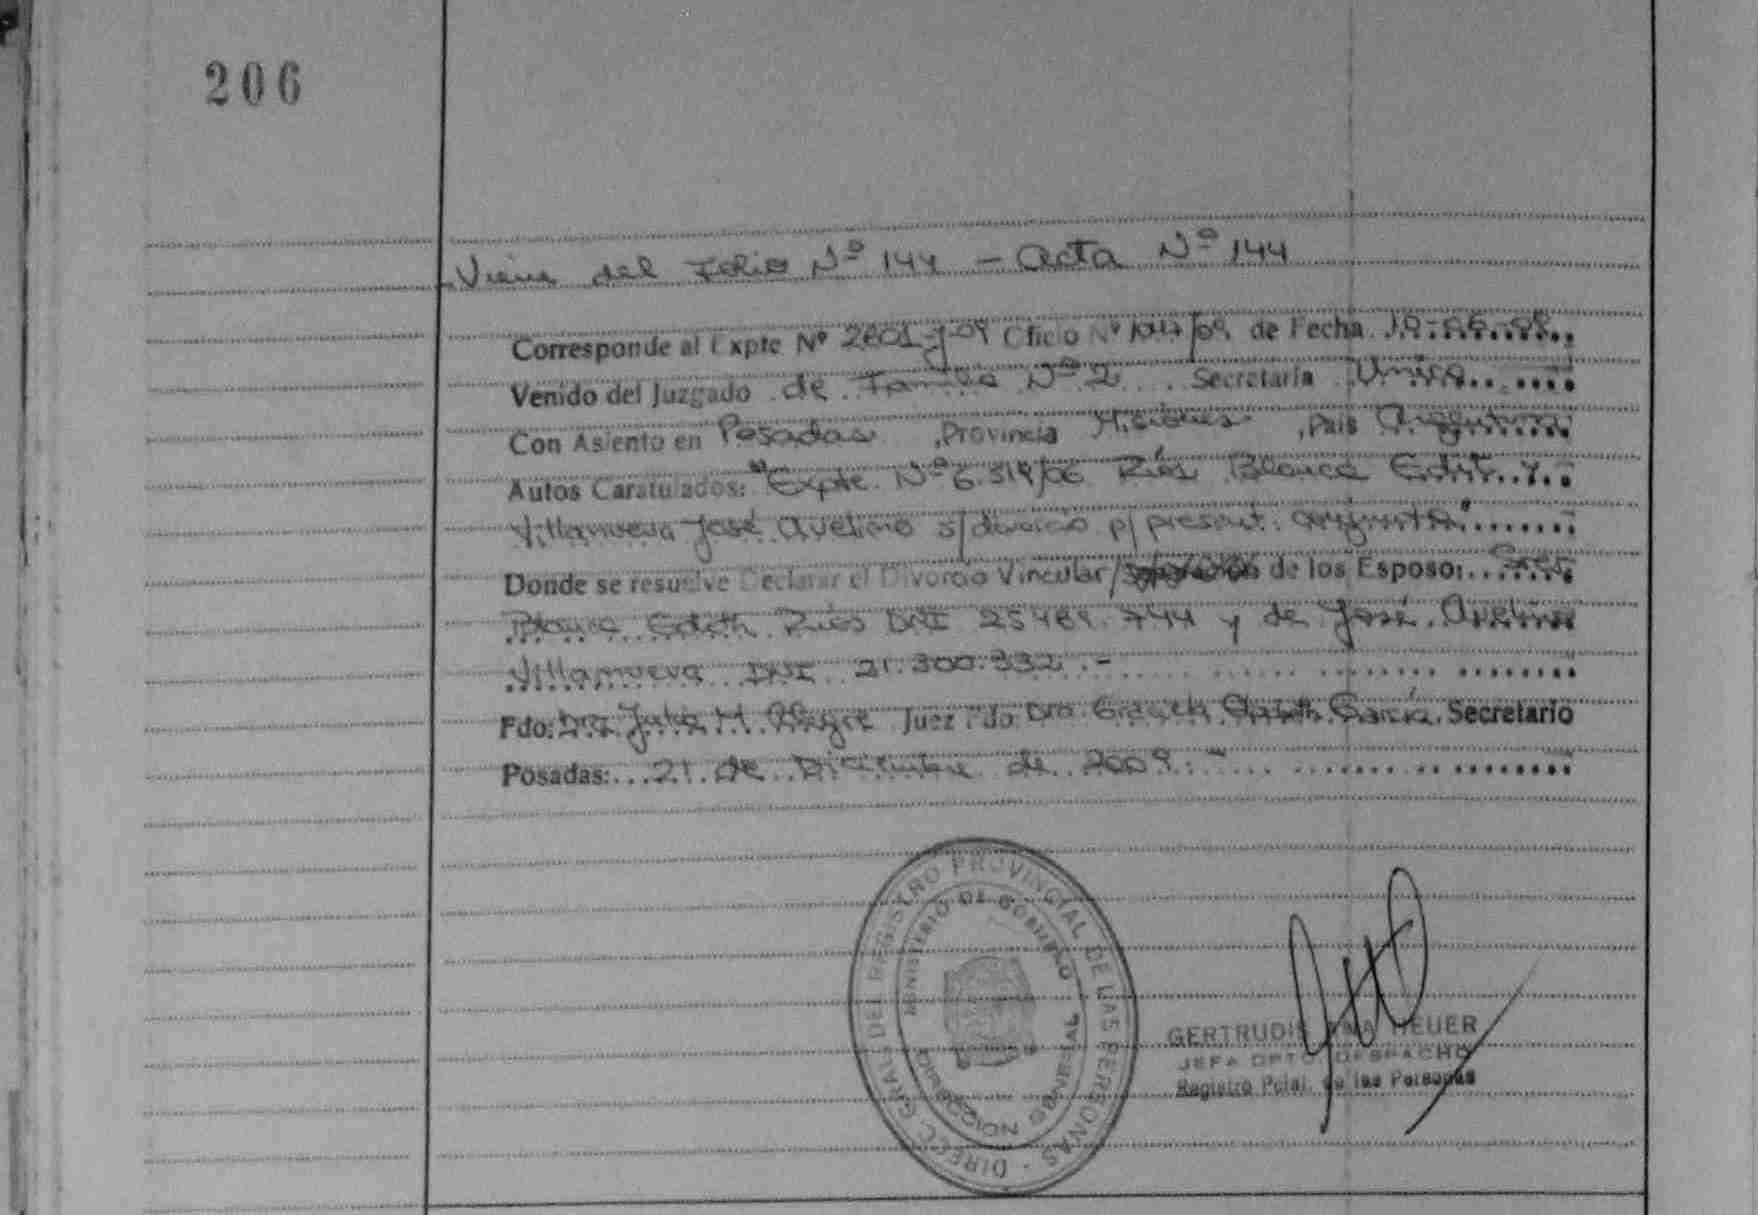 206
Viene del Folio Nº 144 - Acta Nº 144
Corresponde al Expte Nº 2601-J-09 Oficio Nº 1047/09 de Fecha
Venido del Juzgado de Familia Nº 2 Secretaría Unica
Con Asiento en Posadas, Provincia Misiones, País Argentina
Autos Caratulados: "Expte. Nº 6.519/06 Ríos Blanca Edith y
Villanueva José Avelino s/divorcio p/present. conjunta"
Donde se resuelve Declarar el Divorcio Vincular/ de los Esposo: Sres.
Blanca Edith Ríos DNI 25489.744 y de José Avelino
Villanueva DNI 21.300.332.-
Fdo: Dra. Julia M. Alegre Juez Fdo: Dra. Graciela Elizabeth García Secretario
Posadas: 21 de Diciembre de 2009.-
DIREC. GRAL. DEL REGISTRO PROVINCIAL DE LAS PERSONAS
MINISTERIO DE GOBIERNO
GERTRUDIS ANA HEUER
JEFA DPTO. DESPACHO
Registro Pcial. de las Personas